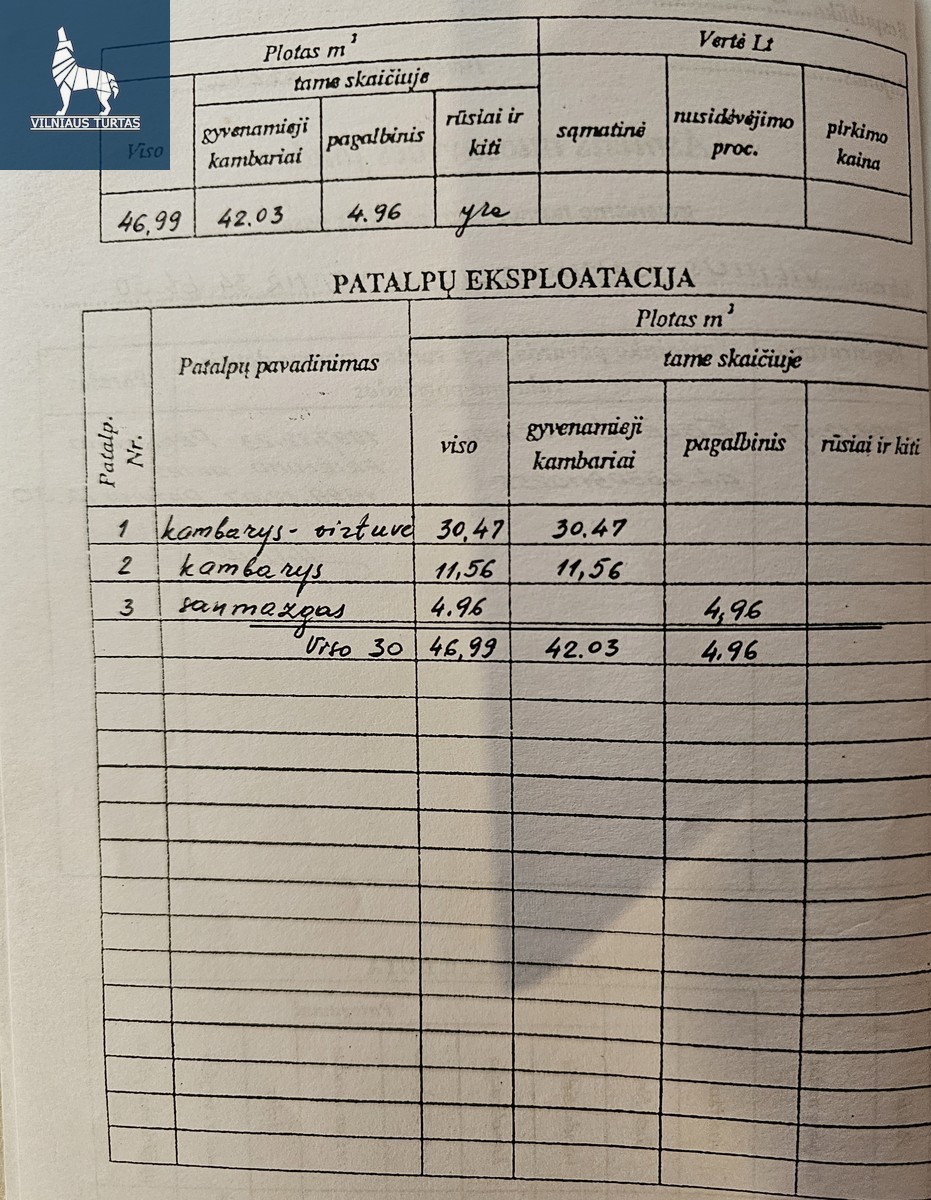 VILNIAUS TURTAS
Plotas m²
Vertė Lt
Viso
tame skaičiuje
gyvenamieji kambariai
pagalbinis
rūsiai ir kiti
sąmatinė
nusidėvėjimo proc.
pirkimo kaina
46,99 42.03 4.96 yra
PATALPŲ EKSPLOATACIJA
Patalp. Nr.
Patalpų pavadinimas
Plotas m²
viso
tame skaičiuje
gyvenamieji kambariai
pagalbinis
rūsiai ir kiti
1 kambarys- virtuvė 30,47 30.47
2 kambarys 11,56 11,56
3 sanmazgas 4.96 4,96
Viso 30 46,99 42.03 4.96